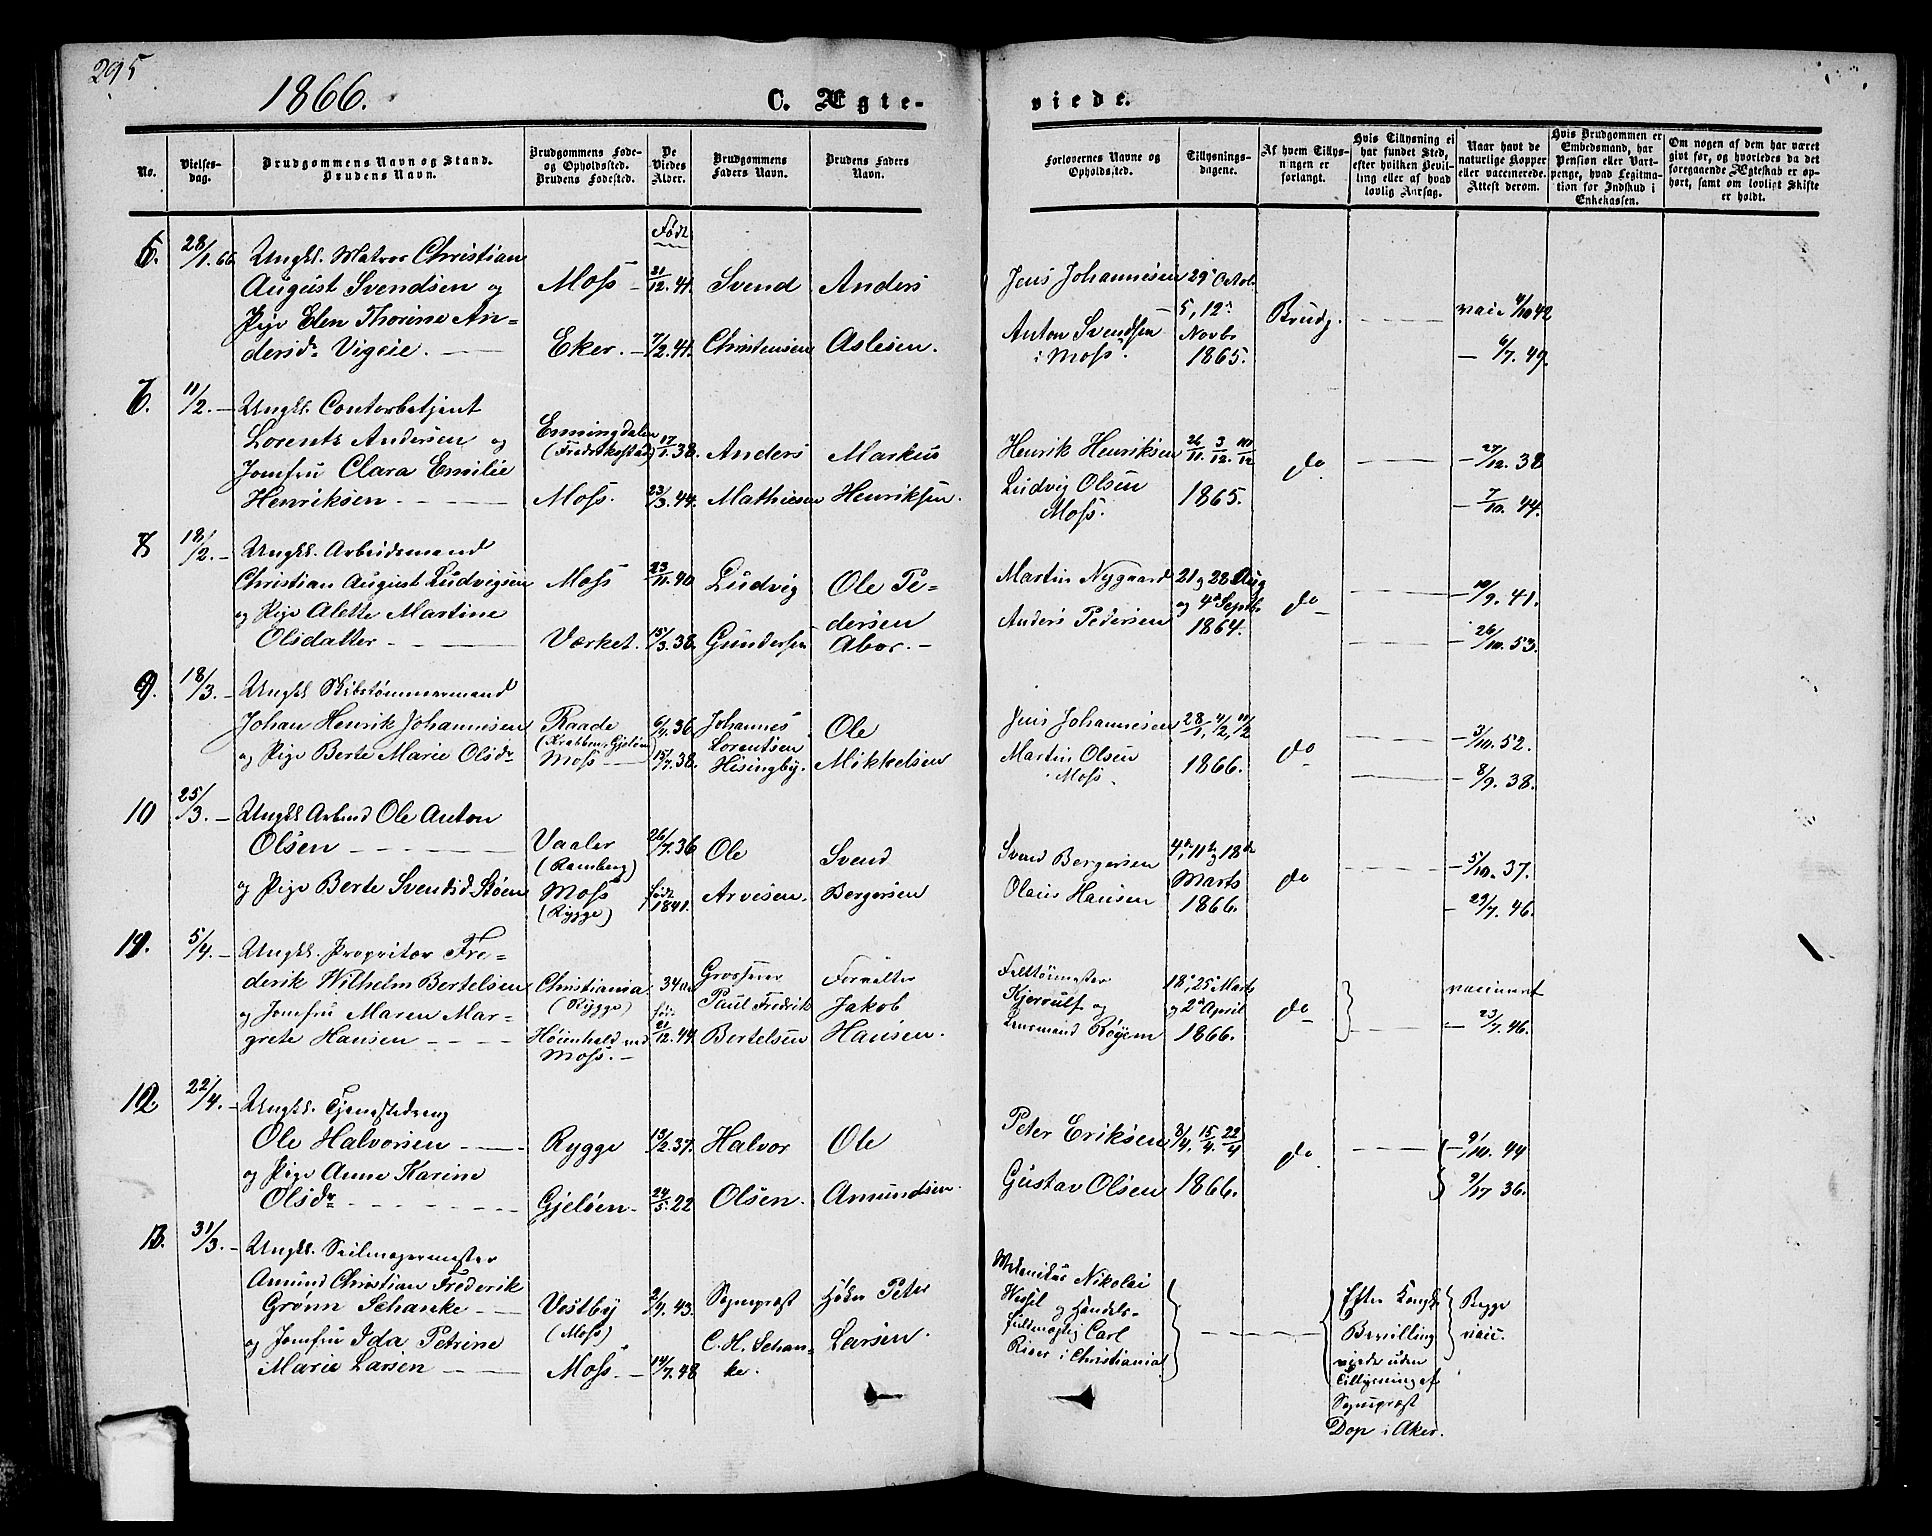 295
1866.
C. Ægte-
viede.
No.
Vielses-
dag.
Brudgommens Navn og Stand.
Brudens Navn.
Brudgommens Føde-
og Opholdssted.
Brudens Fødested.
De
Viedes
Alder.
Brudgommens
Faders Navn.
Brudens Faders
Navn.
Forlovernes Navne og
Opholdssted.
Tillysnings-
dagene.
Af hvem Tillys-
ningen er
forlangt.
Hvis Tillysning ei
har fundet Sted,
efter hvilken Bevil-
ling eller af hvad
lovlig Aarsag.
Naar havt de
naturlige Kopper
eller vaccinerede.
Attest derom.
Hvis Brudgommen er
Embedsmand, har
Pension eller Vart-
penge, hvad Legitma-
tion for Indskud i
Enkekassen.
Om nogen af dem har været
gift før, og hvorledes da det
foregaaende Ægteskab er op-
hørt, samt om lovligt Skifte
er holdt.
Født
6. 28/1.66 Ungkl. Matros Christian
August Svendsen og Moss 21/12.41. Svend Anders Jens Johannesen 29de Octob.
Pige Elen Thorine An- 5, 12te Brudg. vacc 4/10 42
dersdr Vigeie. Eker. 7/2.41. Christensen Aslesen. Anton Svendsen Novbr
i Moss. 1865. 6/7. 49.
7. 11/2. Ungkl. Contorbetjent
Lorents Andersen og Enningdalen
(Fredrikstad) 17/1.38. Anders Markus Henrik Henriksen 26/11. 3/12. 10/12 do 27/12. 38
Jomfru Clara Emilie
Henriksen Moss. 23/3.44. Mathiesen Henriksen. Ludvig Olsen 1865. 7/10. 44.
Moss.
8 18/2. Ungkl. Arbeidsmand
Christian August Ludvigsen Moss 23/11.40 Ludvig Ole Pe- Martin Nygaard 21 og 28 Aug
og Pige Alette Martine dersen og 4de Septb. do 19/9. 41.
Olsdatter Værket. 15/3.38. Gundersen Abor. Anders Pedersen 1864. 26/10. 53.
9. 18/3. Ungkl Skibstømmermand
Johan Henrik Johannesen Raade 6/4.36 Johannes Ole Jens Johannesen 28/1, 4/2, 11/2
(Krabben, Gjeløen) Lorentsen do 3/10. 52.
og Pige Berte Marie Olsdr Moss 15/7.38. Hisingby. Mikkelsen Martin Olsen 1866.
i Moss. 8/9. 38.
10 25/3. Ungkl Arbmd Ole Anton
Olsen Vaaler 26/7.36 Ole Svend Svend Bergersen 4de, 11te og 18de
(Ramberg) Marts do 5/10. 37.
og Pige Berte Svendsd. Støen Moss født 1841. Arvesen. Bergersen Olaus Hansen 1866. 29/7. 46.
(Rygge)
11. 5/4. Ungkl. Propritær Fre-
derik Wilhelm Bertelsen Christiania 34 aar Grosserer Forvalter 18de, 25de Marts
(Rygge) Paul Fredrik Jakob Kjerulf og og 2den April do vaccineret
og Jomfru Maren Mar- født
grete Hansen Høienhald ved 21/12.44. Bertelsen Hansen. Lensmand Røyem 1866. 23/7. 46.
Moss.
12 22/4. Ungkl. Tjenestedreng
Ole Halvorsen Rygge 13/2.37. Halvor Ole Peter Eriksen 8/4, 15/4. 22/4 do 9/10. 44
og Pige Anne Karine
Olsdr Gjeløen 24/5.22 Olsen. Amundsen. Gustav Olsen 1866. 9/17 36.
13. 31/3. Ungkl. Seilmagermester
Amund Christian Frederik Nikolai
Grønn Schanke Vestby 2/7.43. Sognepræst Peter Wessel og Handels- Efter Kongl. Begge
(Moss) Bevilling vacc.
og Jomfru Ida Petrine C. H. Schan- Larsen. fuldmægtig Carl viede uden
Marie Larsen Moss. 14/7.48 ke. Riser i Christiania Tillysning af
Sognepræst
Dop i Aker.